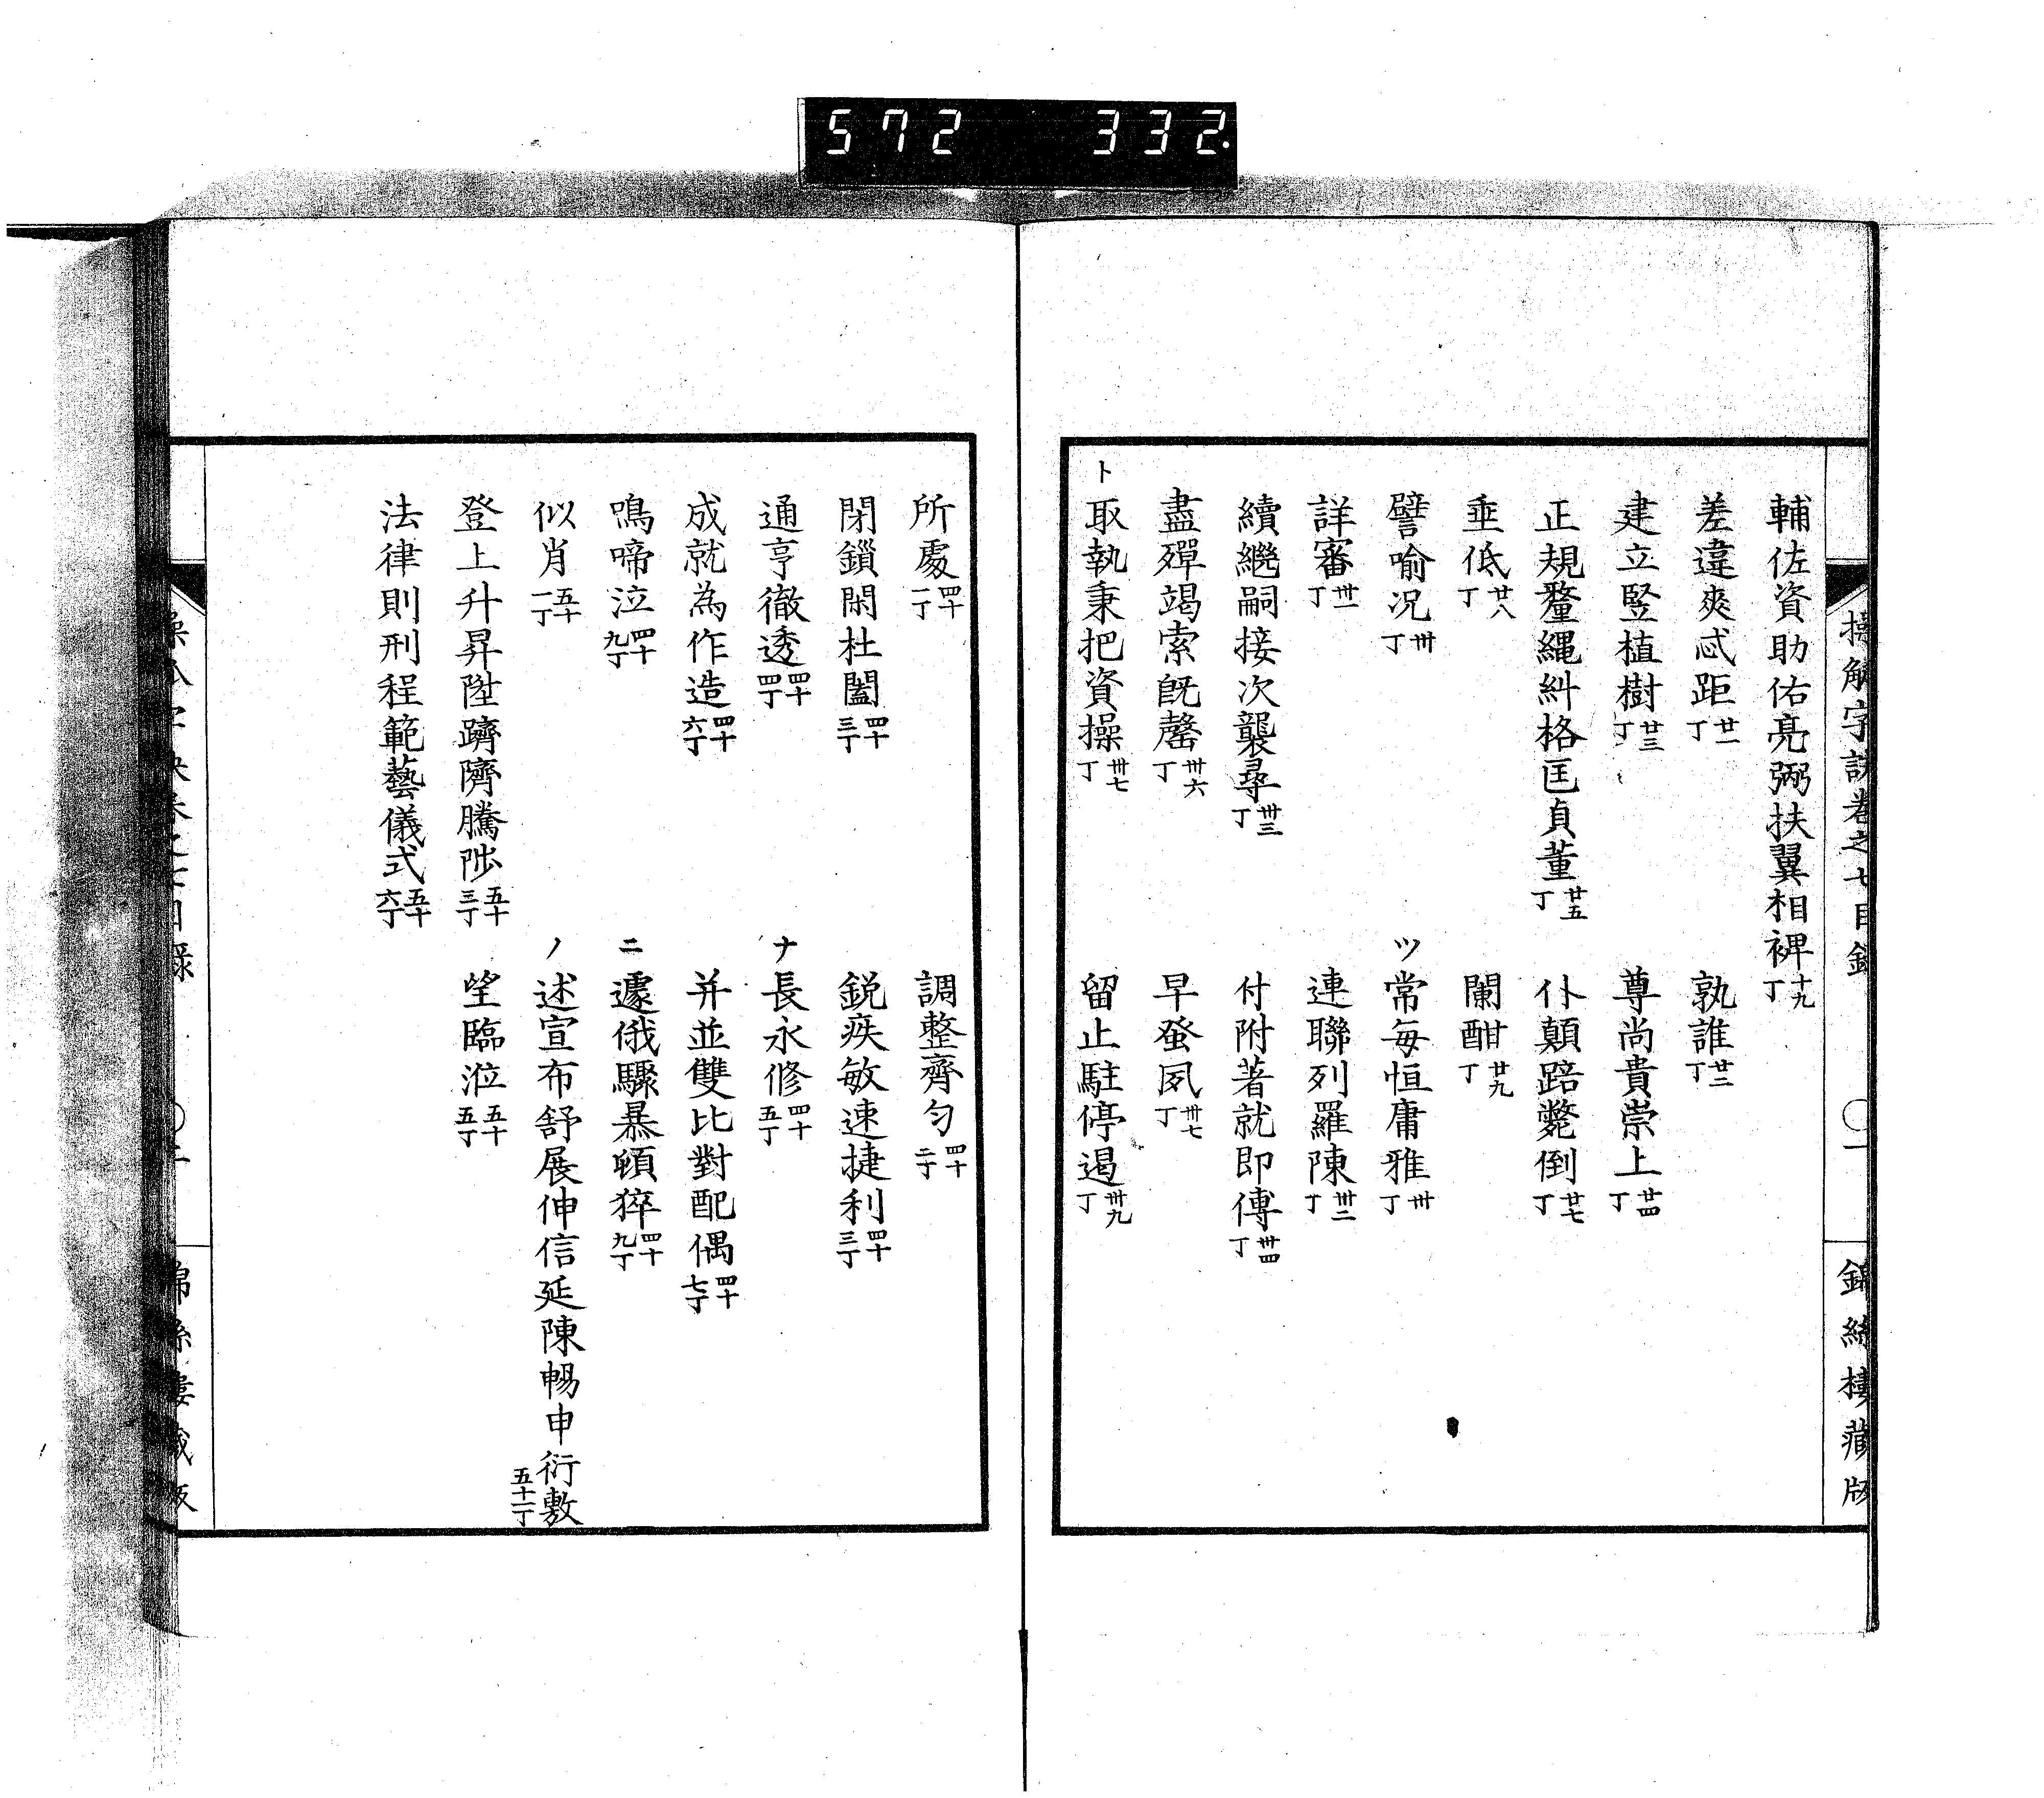 572 332.
操觚字訣卷之七目録 〇一 錦絲樓藏版
輔佐資助佑亮弼扶翼相裨十九丁
差違爽忒距廿一丁 孰誰廿二丁
建立竪植樹廿三丁 尊尚貴崇上廿四丁
正規釐繩糾格匡貞董廿五丁 仆顛踣斃倒廿七丁
垂低廿八丁 闌酣廿九丁
譬喻况卅丁 ツ 常每恒庸雅卅丁
詳審卅一丁 連聯列羅陳卅二丁
續繼嗣接次襲尋卅三丁 付附著就即傳卅四丁
盡殫竭索既罄卅六丁 早蚤夙卅七丁
ト 取執秉把資操卅七丁 留止駐停遏卅九丁
所處四十一丁 調整齊勻四十二丁
閉鎖閑杜闔四十三丁 鋭疾敏速捷利四十三丁
通亨徹透四十四丁 ナ 長永修四十五丁
成就為作造四十六丁 并並雙比對配偶四十七丁
鳴啼泣四十九丁 ニ 遽俄驟暴頓猝四十九丁
似肖五十一丁 ノ 述宣布舒展伸信延陳暢申衍敷五十一丁
登上升昇陞躋隮騰陟五十三丁 望臨涖五十五丁
法律則刑程範藝儀式五十六丁